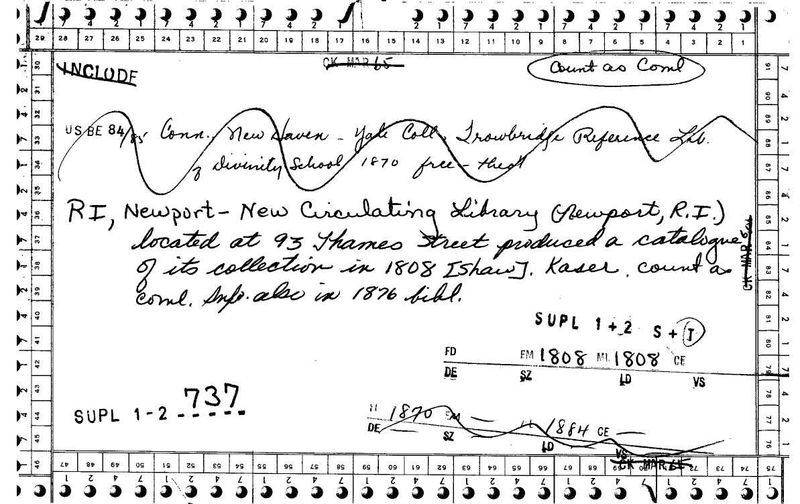 29 28 27 26 25 24 23 22 21 20 19 18 17 16 15 14 13 12 11 10 9 8 7 6 5 4 3 2 1
INCLUDE
CK MAR 65
Count as Coml
US BE 84/85 Conn. New Haven - Yale Coll. Trowbridge Reference Lib.
Divinity School 1870 free-theol
RI, Newport - New Circulating Library (Newport, R.I.)
located at 93 Thames Street produced a catalogue
of its collection in 1808 [Shaw]. Kaser. count as
coml. Info. also in 1876 bibl.
CK MAR
SUPL 1+2 S + I
FD EM 1808 ML 1808 CE
DE SZ LD VS
SUPL 1-2 737
1870
1884 CE
DE SZ LD VS
CK MAR 65
46 47 48 49 50 51 52 53 54 55 56 57 58 59 60 61 62 63 64 65 66 67 68 69 70 71 72 73 74 75